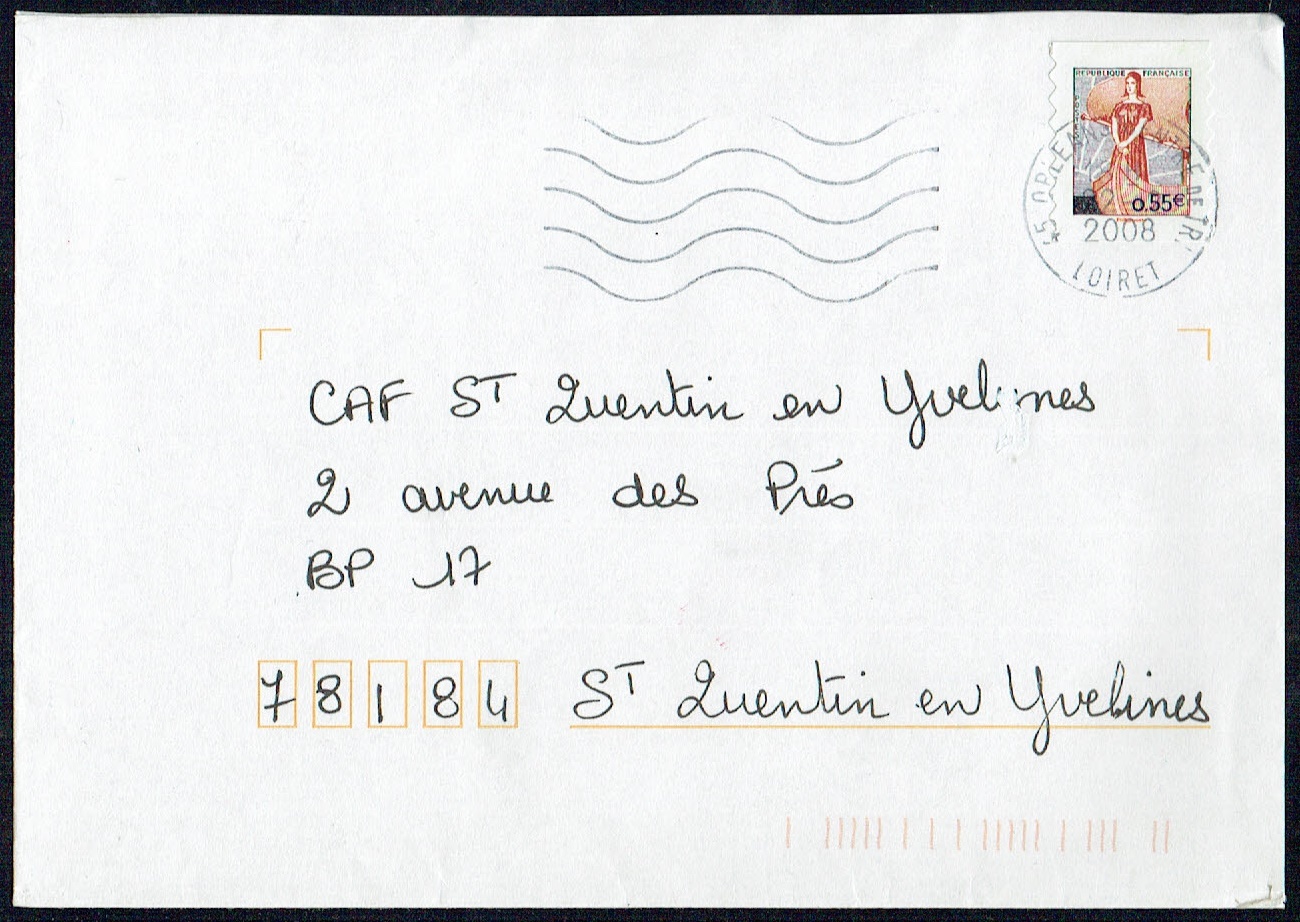 REPUBLIQUE FRANÇAISE
0,55€
2008
LOIRET
CAF ST Quentin en Yvelines
2 avenue des Prés
BP 17
78184 ST Quentin en Yvelines